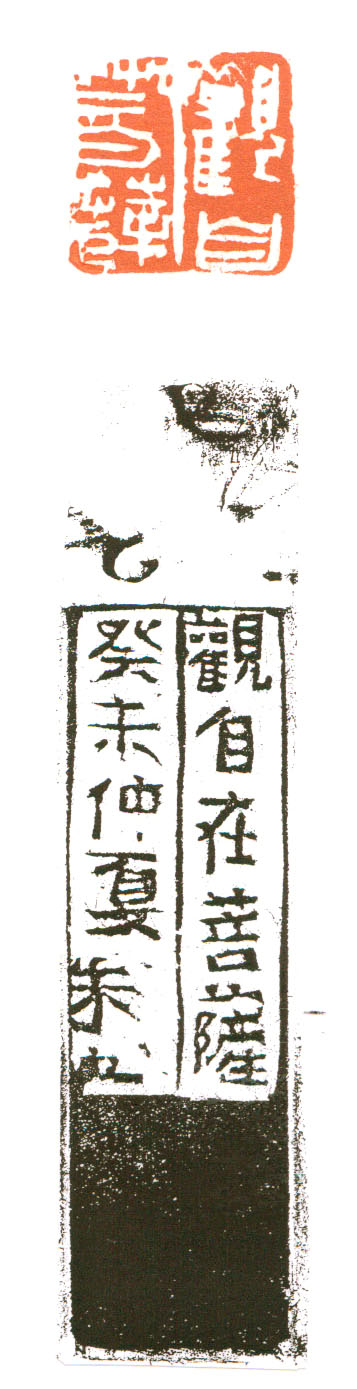 觀自
觀自在菩薩
癸未仲夏朱